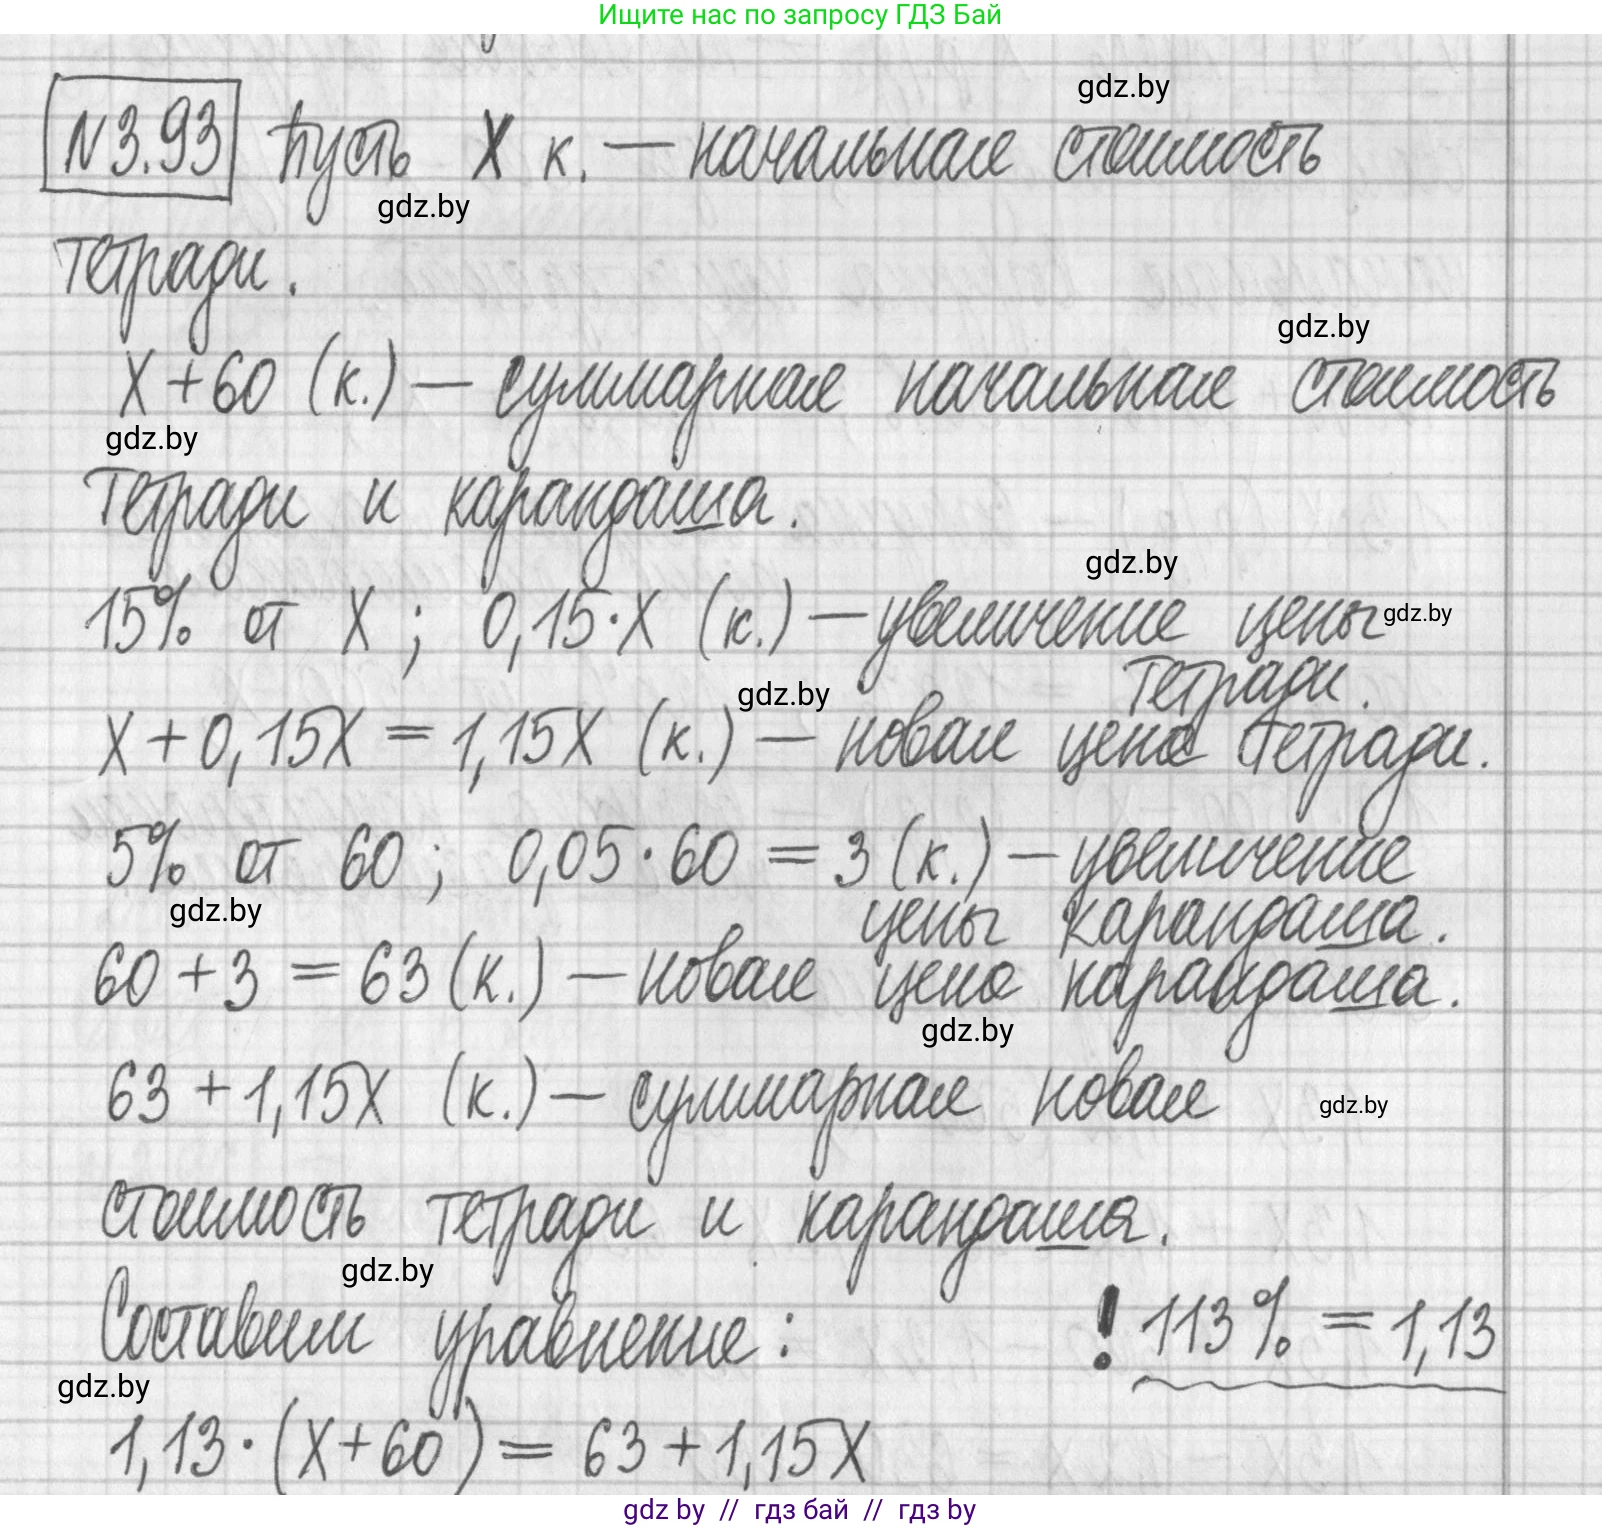 Ищите нас по запросу ГДЗ Бай
gdz.by
N3.93 Пусть х к. — начальная стоимость
gdz.by
тетради.
gdz.by
х + 60 (к.) — суммарная начальная стоимость
gdz.by
тетради и карандаша.
gdz.by
15% от х ; 0,15·х (к.) — увеличение цены gdz.by
тетради.
gdz.by
х + 0,15х = 1,15х (к.) — новая цена тетради.
5% от 60 ; 0,05·60 = 3 (к.) — увеличение
gdz.by
цены карандаша.
60 + 3 = 63 (к.) — новая цена карандаша.
gdz.by
63 + 1,15х (к.) — суммарная новая gdz.by
стоимость тетради и карандаша.
gdz.by
Составим уравнение: ! 113% = 1,13
gdz.by
1,13·(х+60) = 63 + 1,15х
gdz by // гдз бай // гдз by